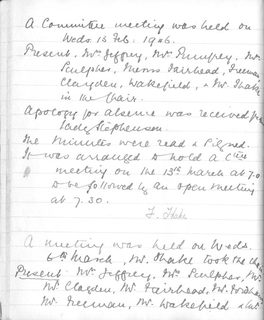 A Committee meeting was held on
Weds. 15 Feb. 1906.
Present, Mr Jeffrey, Mr Pumfrey, Mr
Sculpher, Messrs Fairhead, Freeman
Clayden, Wakefield, & Mr Thake
in the Chair.
Apology for absence was received from
Lady Stephenson.
The Minutes were read & signed.
It was arranged to hold a Cttee
meeting on the 13th March at 7.0
to be followed by an open meeting
at 7.30.
F. Thake
A meeting was held on Weds.
6th March, Mr. Thake took the chair
Present Mr Jeffrey, Mr Sculpher,
Mr Clayden, Mr Fairhead, Mr
Mr Freeman, Mr. Wakefield &